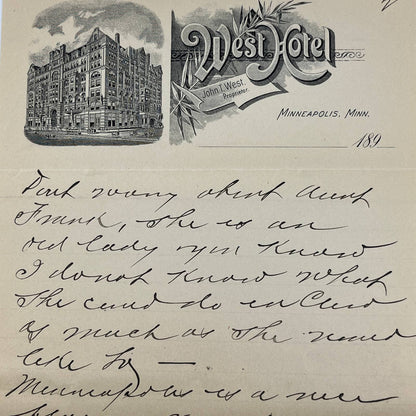 West Hotel
John T. West,
Proprietor.
Minneapolis, Minn.
189
Dont worry about Aunt
Frank, she is an
old lady you know
I do not know what
she could do in
as much as she would
like to —
Minneapolis is a nice